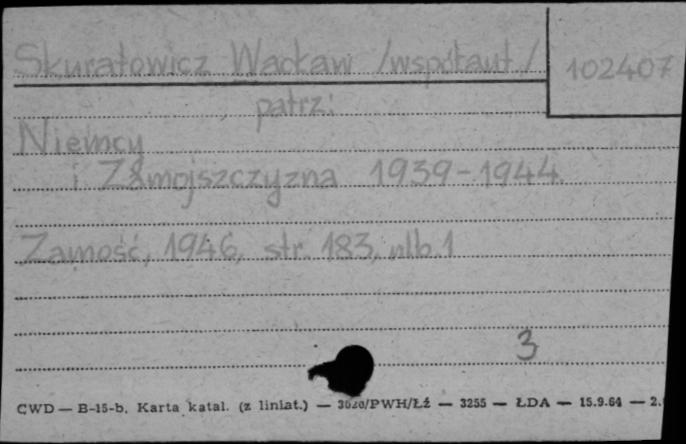 Skuratowicz Wacław /współaut./
102407
patrz:
Niemcy
i Zamojszczyzna 1939-1944.
Zamość, 1946, str. 183, nlb. 1
3
CWD — B-15-b. Karta katal. (z liniat.) — 3620/PWH/Łź — 3255 — ŁDA — 15.9.64 — 2.